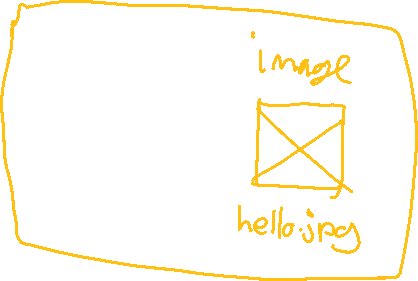 image
hello.jpg